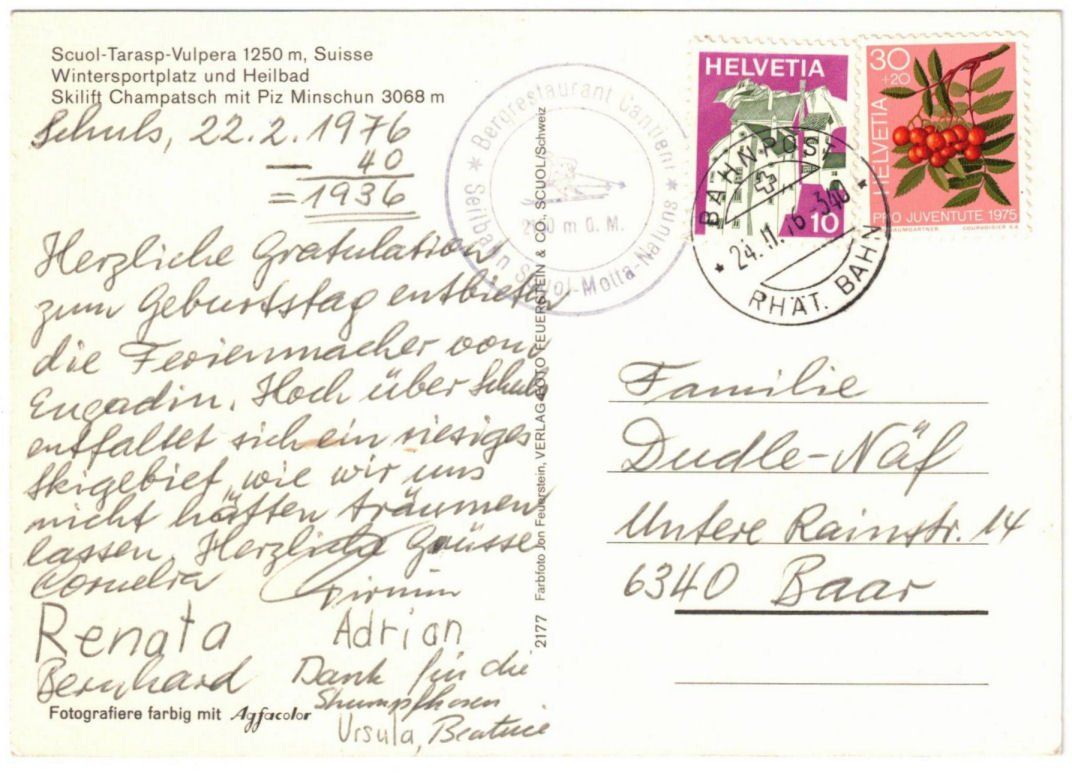 Scuol-Tarasp-Vulpera 1250 m, Suisse
Wintersportplatz und Heilbad
Skilift Champatsch mit Piz Minschun 3068 m
Schuls, 22.2.1976
— 40
= 1936
Herzliche Gratulation
zum Geburtstag entbieten
die Ferienmacher vom
Engadin. Hoch über Schuls
entfaltet sich ein riesiges
Skigebiet, wie wir uns
nicht hätten träumen
lassen. Herzliche Grüsse
Cornelia Pirmin
Renata Adrian
Bernhard Dank für die
Strumpfhosen
Ursula, Beatrice
Fotografiere farbig mit Agfacolor
2177 Farbfoto Jon Feuerstein, VERLAG FOTO FEUERSTEIN & CO., SCUOL/Schweiz
* Bergrestaurant *
Seilbahn Scuol-Motta-Naluns
m ü. M.
HELVETIA
10
30
+20
HELVETIA
PRO JUVENTUTE 1975
COURVOISIER S.A.
BAHNPOST
24.11.76-340
RHÄT. BAHN
Familie
Dudle-Näf
Untere Rainstr. 14
6340 Baar